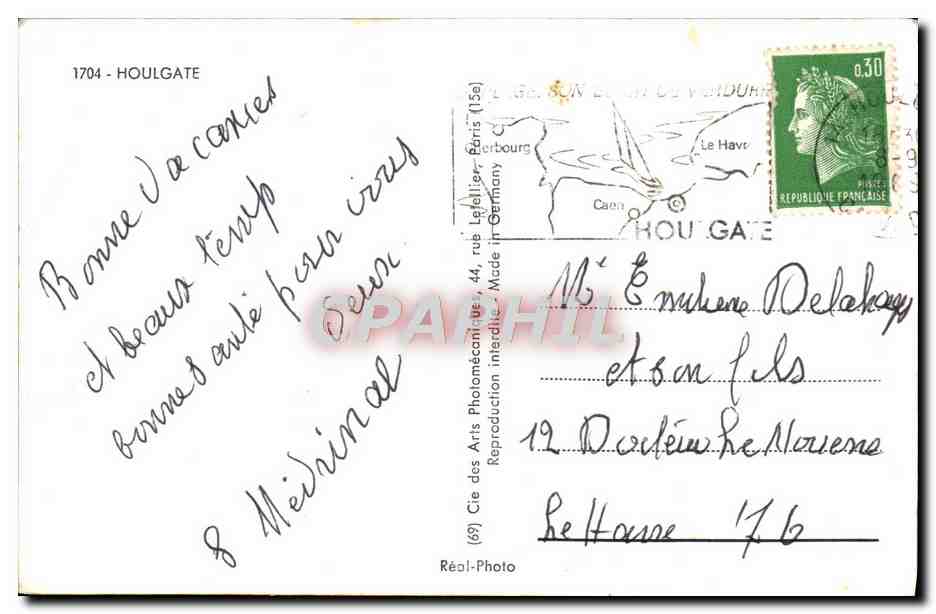 1704 - HOULGATE
Bonne Vacances
et beaux temp
bonne santé pour vous
deux
8 Médrinal
(69) Cie des Arts Photomécaniques, 44, rue Letellier, Paris (15e)
Reproduction interdite - Made in Germany
Réal-Photo
SON DE VERDURE
Cherbourg
Le Havre
Caen
HOULGATE
0,30
POSTES
REPUBLIQUE FRANÇAISE
CPAPHIL
Delahaye
et son fils
12 Docteur Le Nouene
Le Havre 76